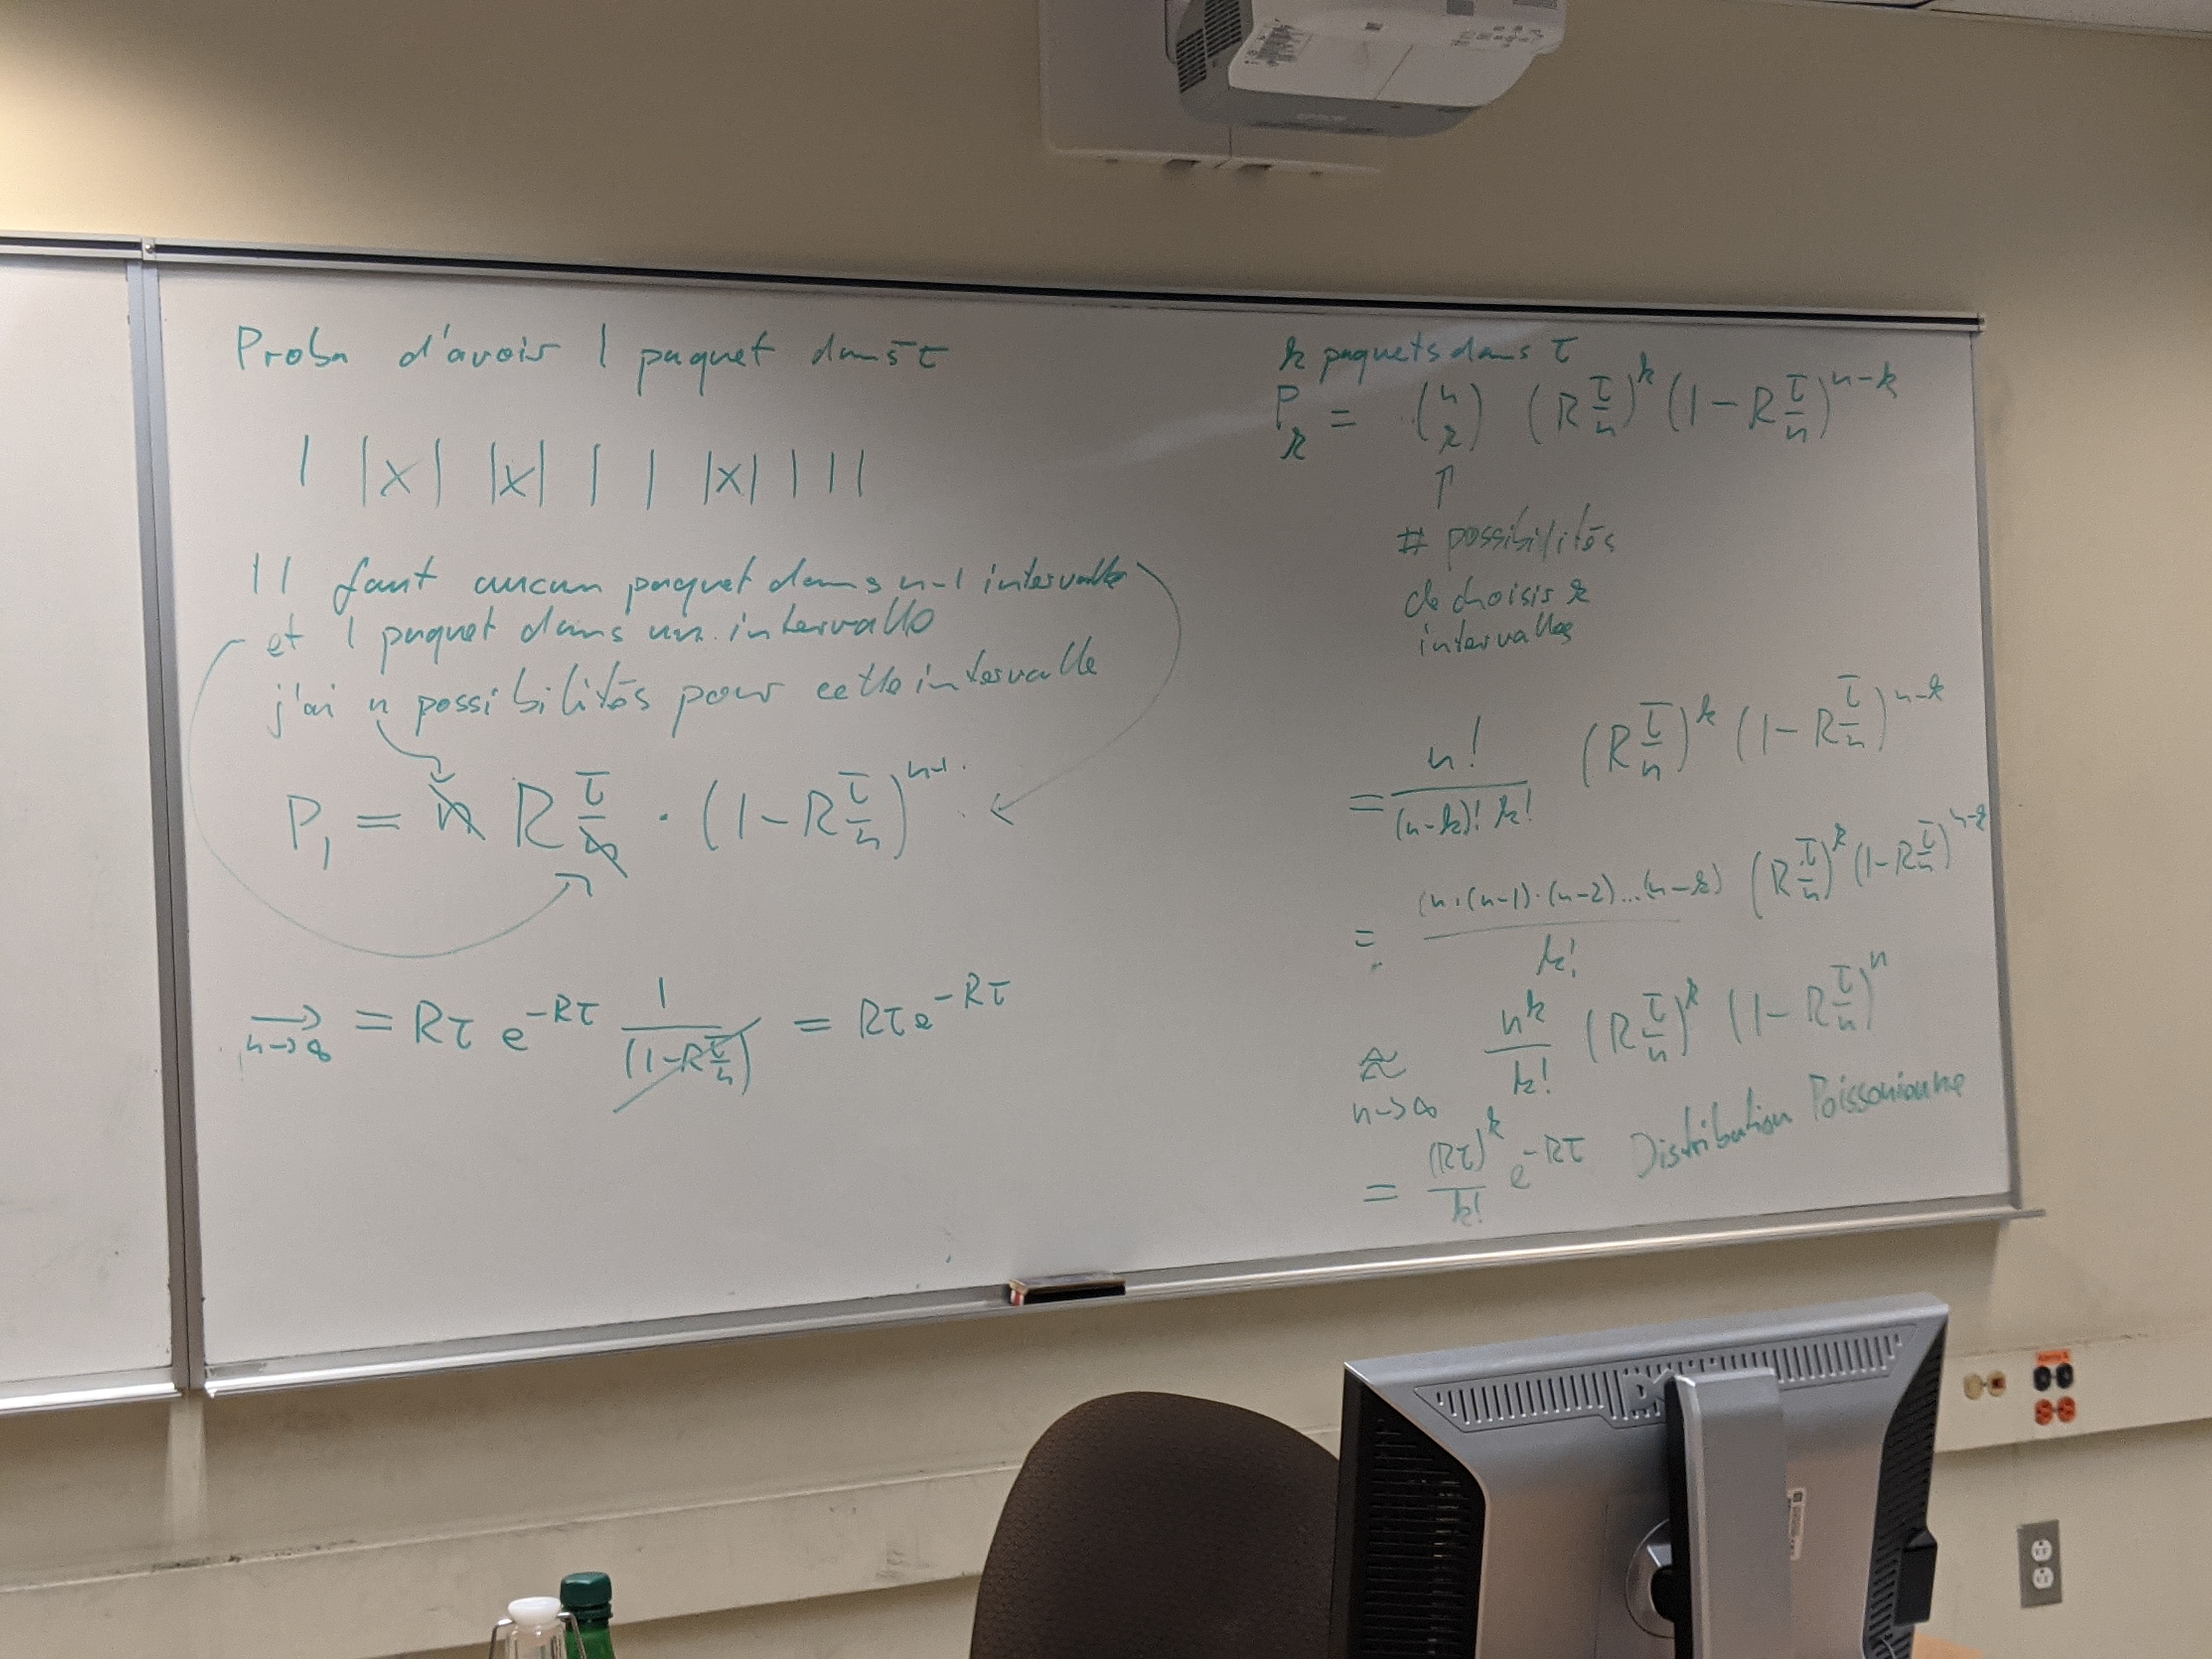 Proba d'avoir 1 paquet dans τ
| |X| |X| | | |X| | | |
Il faut aucun paquet dans n-1 intervalle
et 1 paquet dans un intervalle
j'ai n possibilités pour cette intervalle
P₁ = n R τ/n · (1 - R τ/n)^(n-1)
→ n→∞ = Rτ e^(-Rτ) 1/(1-R τ/n) = Rτ e^(-Rτ)
k paquets dans τ
P_k = (n k) (R τ/n)^k (1 - R τ/n)^(n-k)
↑
# possibilités
de choisir k
intervalles
= n!/((n-k)! k!) (R τ/n)^k (1 - R τ/n)^(n-k)
= (n·(n-1)·(n-2)...(n-k))/k! (R τ/n)^k (1 - R τ/n)^(n-k)
≈ n→∞ n^k/k! (R τ/n)^k (1 - R τ/n)^n
= (Rτ)^k/k! e^(-Rτ) Distribution Poissonionne